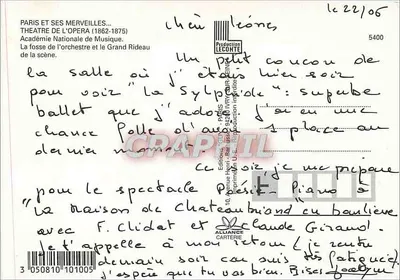 PARIS ET SES MERVEILLES...
THEATRE DE L'OPERA (1862-1875)
Académie Nationale de Musique.
La fosse de l'orchestre et le Grand Rideau
de la scène.
le 22/06
Production
LECONTE
5400
Un petit coucou de
la salle où j'étais hier soir
pour voir "La Sylphide": superbe
ballet que j'adore. J'ai eu une
chance folle d'avoir 1 place au
dernier moment.
Ce soir je me prépare
pour le spectacle Poésie-Piano à
"La Maison de Chateaubriand" en banlieue
avec F. Clidat et Claude Giraud.
Je t'appelle à mon retour (je rentre
demain soir car suis très fatiguée
J'espère que tu vas bien. Bises
ALLIANCE
CARTERIE
3 050810 101005
CPAPHIL